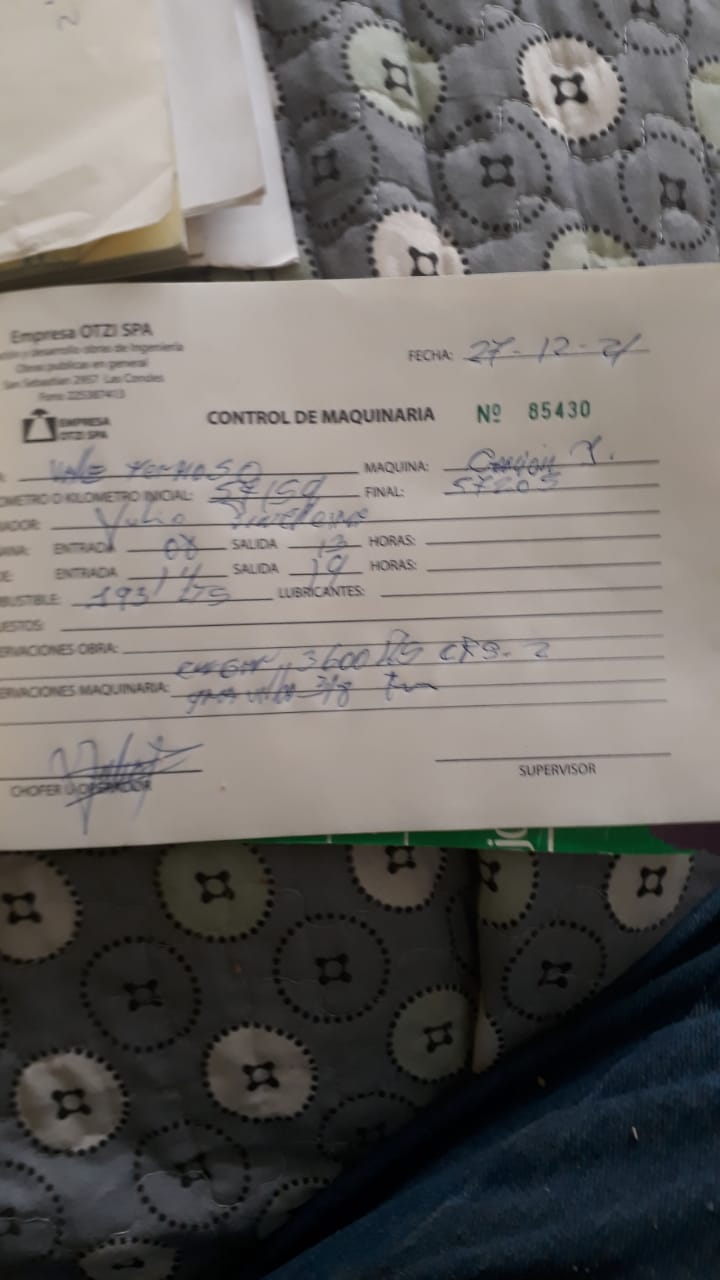 Empresa OTZI SPA
y desarrollo obras de Ingeniería
Obras públicas en general
San Sebastian 2957 Las Condes
Fono 225387413
FECHA: 27-12-21
EMPRESA
OTZI SPA
CONTROL DE MAQUINARIA Nº 85430
Valle Hermoso MAQUINA: Camión
OMETRO O KILOMETRO INICIAL: 57159 FINAL: 57205
ADOR: Julio
ANA: ENTRADA 08 SALIDA 13 HORAS:
DE: ENTRADA 14 SALIDA 19 HORAS:
BUSTIBLE: 193 LTS LUBRICANTES:
UESTOS:
ERVACIONES OBRA:
3600 LTS CRS-2
ERVACIONES MAQUINARIA: gravilla 3/8
CHOFER U OPERADOR
SUPERVISOR